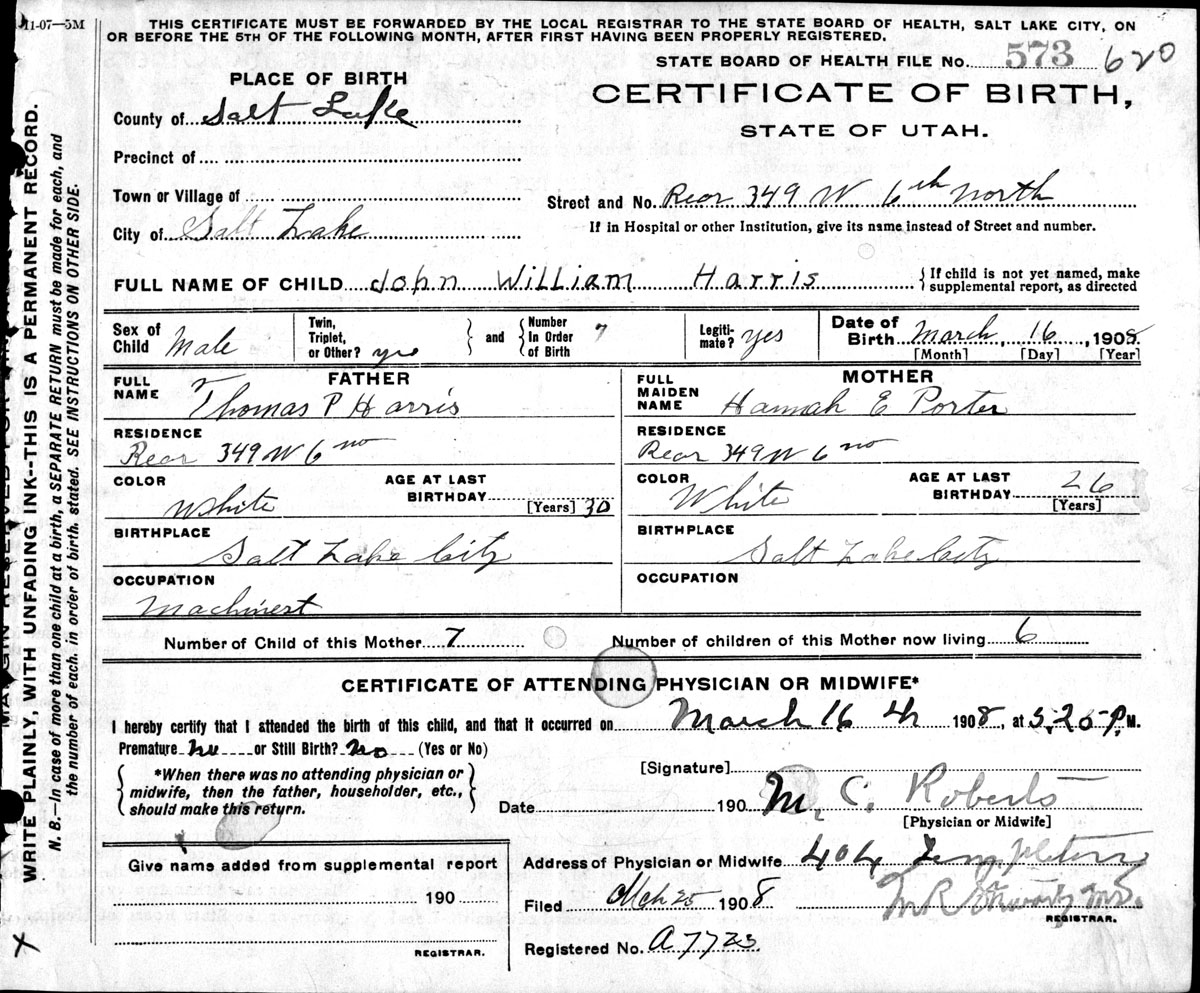 11-07—5M
THIS CERTIFICATE MUST BE FORWARDED BY THE LOCAL REGISTRAR TO THE STATE BOARD OF HEALTH, SALT LAKE CITY, ON
OR BEFORE THE 5TH OF THE FOLLOWING MONTH, AFTER FIRST HAVING BEEN PROPERLY REGISTERED.
STATE BOARD OF HEALTH FILE No. 573 620
PLACE OF BIRTH
CERTIFICATE OF BIRTH,
STATE OF UTAH.
County of Salt Lake
Precinct of
Town or Village of
Street and No. Rear 349 W 6th North
City of Salt Lake
If in Hospital or other Institution, give its name instead of Street and number.
FULL NAME OF CHILD John William Harris
If child is not yet named, make
supplemental report, as directed
Sex of Child Male
Twin, Triplet, or Other?
and
Number In Order of Birth 7
Legiti-mate? yes
Date of Birth March, 16, 1908.
[Month] [Day] [Year]
FATHER
FULL NAME Thomas P Harris
RESIDENCE
Rear 349 W 6 no
COLOR
White
AGE AT LAST BIRTHDAY 30
[Years]
BIRTHPLACE
Salt Lake City
OCCUPATION
Machinest
MOTHER
FULL MAIDEN NAME Hannah E Porter
RESIDENCE
Rear 349 W 6 no
COLOR
White
AGE AT LAST BIRTHDAY 26
[Years]
BIRTHPLACE
Salt Lake City
OCCUPATION
Number of Child of this Mother 7
Number of children of this Mother now living 6
CERTIFICATE OF ATTENDING PHYSICIAN OR MIDWIFE*
I hereby certify that I attended the birth of this child, and that it occurred on March 16 th 1908, at 5.20 P.M.
Premature no or Still Birth? No (Yes or No)
*When there was no attending physician or
midwife, then the father, householder, etc.,
should make this return.
[Signature]
M. C. Roberts
Date 190
[Physician or Midwife]
Give name added from supplemental report
190
REGISTRAR.
Address of Physician or Midwife 404 Templeton
Filed Mch 25 1908
M R Stewart M.D.
REGISTRAR.
Registered No. A7723
WRITE PLAINLY, WITH UNFADING INK--THIS IS A PERMANENT RECORD.
N. B.—In case of more than one child at a birth, a SEPARATE RETURN must be made for each, and
the number of each, in order of birth, stated. SEE INSTRUCTIONS ON OTHER SIDE.
X